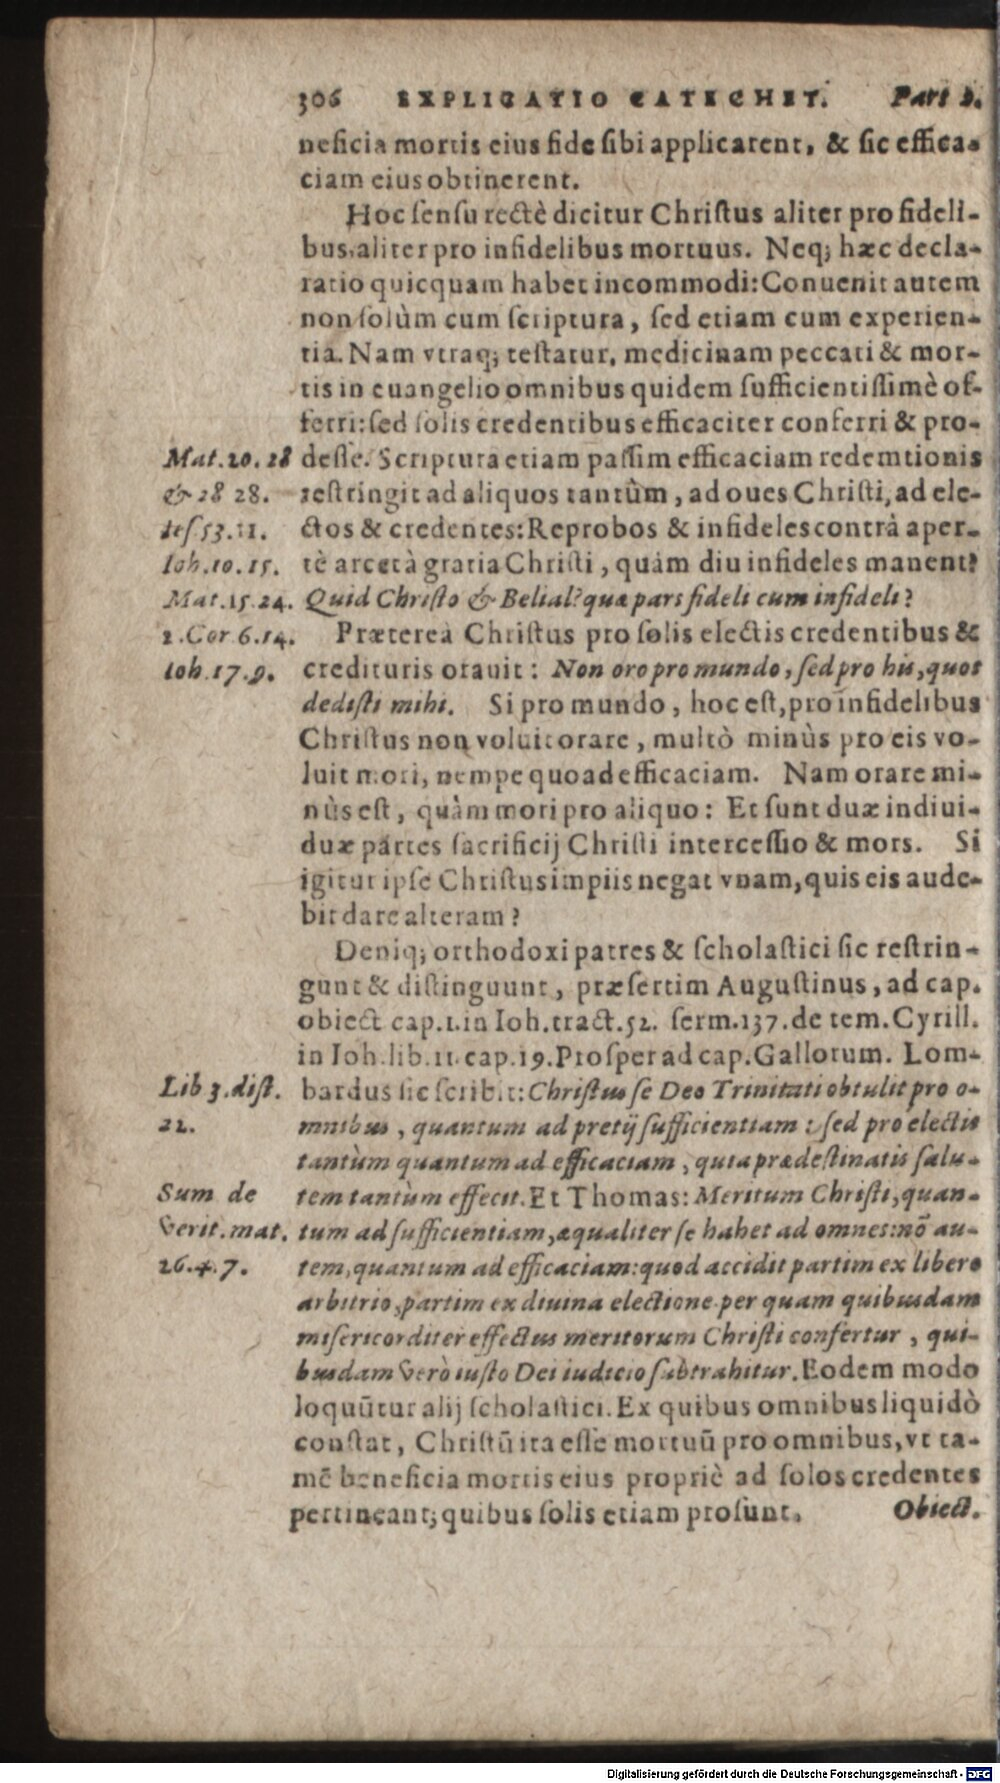 306 EXPLICATIO CATECHET. Part 2.
neficia mortis eius fide sibi applicarent, & sic effica-
ciam eius obtinerent.
Hoc sensu rectè dicitur Christus aliter pro fideli-
bus, aliter pro infidelibus mortuus. Neq; hæc decla-
ratio quicquam habet incommodi: Conuenit autem
non solùm cum scriptura, sed etiam cum experien-
tia. Nam vtraq; testatur, medicinam peccati & mor-
tis in euangelio omnibus quidem sufficientissimè of-
ferri: sed solis credentibus efficaciter conferri & pro-
Mat. 20. 28 desse. Scriptura etiam passim efficaciam redemtionis
& 28 28. restringit ad aliquos tantùm, ad oues Christi, ad ele-
Ies. 53. 11. ctos & credentes: Reprobos & infideles contrà aper-
Ioh. 10. 15. tè arcet à gratia Christi, quàm diu infideles manent:
Mat. 15. 24. Quid Christo & Belial? quæ pars fideli cum infideli?
2. Cor 6. 14. Præterea Christus pro solis electis credentibus &
Ioh. 17. 9. credituris orauit: Non oro pro mundo, sed pro his, quos
dedisti mihi. Si pro mundo, hoc est, pro infidelibus
Christus non voluit orare, multò minùs pro eis vo-
luit mori, nempe quoad efficaciam. Nam orare mi-
nùs est, quàm mori pro aliquo: Et sunt duæ indiui-
duæ partes sacrificij Christi intercessio & mors. Si
igitur ipse Christus impiis negat vnam, quis eis aude-
bit dare alteram?
Deniq; orthodoxi patres & scholastici sic restrin-
gunt & distinguunt, præsertim Augustinus, ad cap.
obiect cap. 1. in Ioh. tract. 52. serm. 137. de tem. Cyrill.
in Ioh. lib. 11. cap. 19. Prosper ad cap. Gallorum. Lom-
Lib 3. dist. bardus sic scribit: Christus se Deo Trinitati obtulit pro o-
22. mnibus, quantum ad pretij sufficientiam: sed pro electis
tantùm quantum ad efficaciam, quia prædestinatis salu-
Sum de tem tantùm effecit. Et Thomas: Meritum Christi, quan-
verit. mat. tum ad sufficientiam, æqualiter se habet ad omnes: nō au-
26. 4. 7. tem, quantum ad efficaciam: quod accidit partim ex libero
arbitrio, partim ex diuina electione per quam quibusdam
misericorditer effectus meritorum Christi confertur, qui-
busdam verò iusto Dei iudicio subtrahitur. Eodem modo
loquūtur alij scholastici. Ex quibus omnibus liquidò
constat, Christū ita esse mortuū pro omnibus, vt ta-
mē beneficia mortis eius propriè ad solos credentes
pertineant; quibus solis etiam prosunt. Obiect.
Digitalisierung gefördert durch die Deutsche Forschungsgemeinschaft - DFG